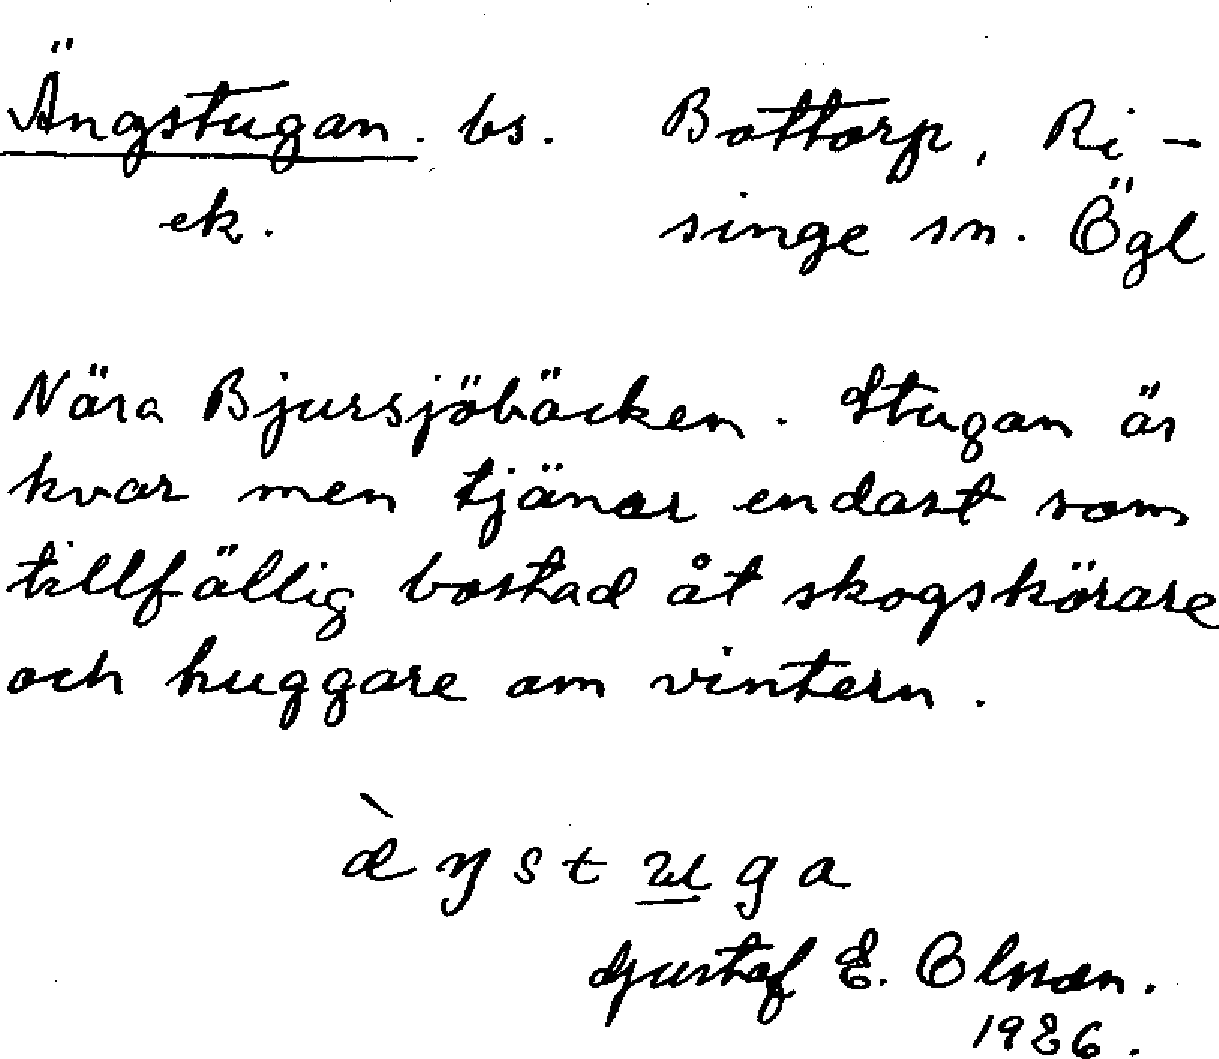 Ängstugan. bs. Bottorp, Ri-
ek. singe sn. Ögl
Nära Bjursjöbäcken. Stugan är
kvar men tjänar endast som
tillfällig bostad åt skogskörare
och huggare om vintern.
æ̀ŋstuga
Gustaf E. Olsson.
1926.